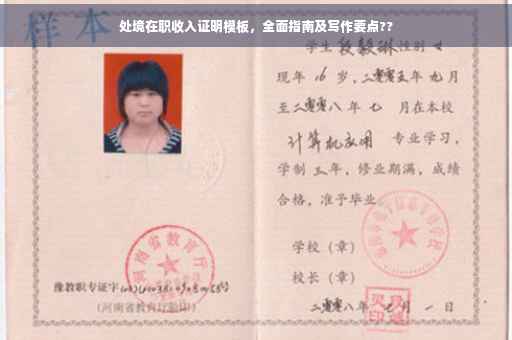 处境在职收入证明模板，全面指南及写作要点??
样本
学生段毅琳性别女
现年16岁，二零零五年九月
至二零零八年七月在本校
计算机应用 专业学习，
学制三年，修业期满，成绩
合格，准予毕业
学校（章）
校长（章）
二零零八年七月一日
河南省教育厅
豫教职专证字
(河南省教育厅验印)